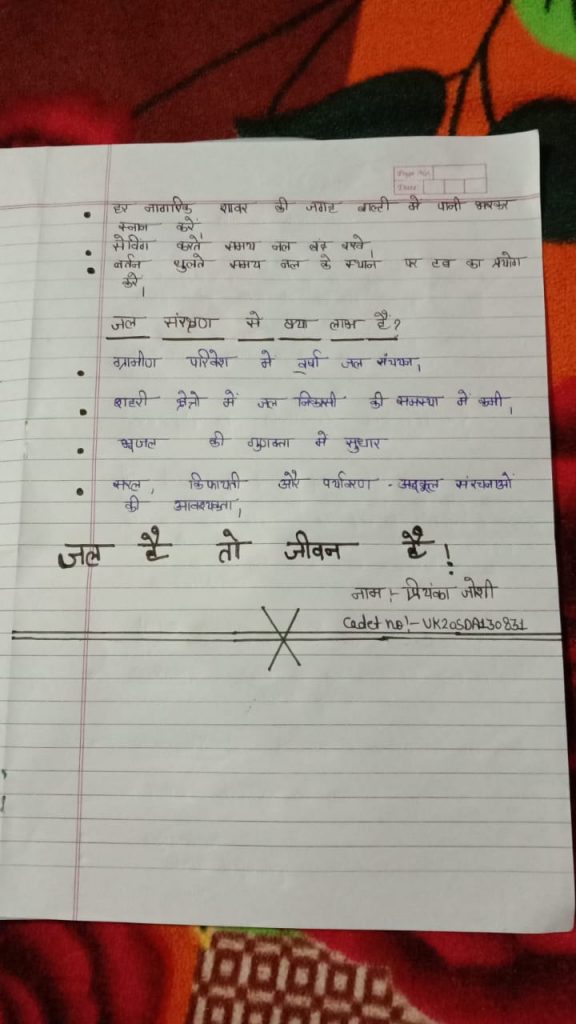 Page No.
Date
हर नागरिक शावर की जगह बाल्टी में पानी भरकर
स्नान करें।
सेविंग करते समय नल बंद रखे।
बर्तन धुलते समय नल के स्थान पर टब का प्रयोग
करे।
जल संरक्षण से क्या लाभ है?
ग्रामीण परिवेश में वर्षा जल संचयन।
शहरी क्षेत्रो में जल निकासी की समस्या में कमी।
भूजल की गुणवत्ता में सुधार
सरल, किफायती और पर्यावरण - अनुकूल संरचनाओं
की आवश्यकता।
जल है तो जीवन है!
नाम :- प्रियंका जोशी
Cadet no:- UK20SDA130831